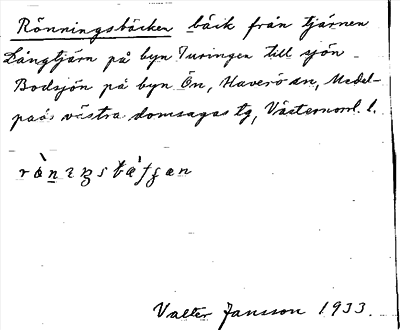 Rönningsbäcken bäck från tjärnen
Långtjärn på byn Turingen till sjön
Bodsjön på byn Ön, Haverö sn, Medel-
pads västra domsagas tg, Västernorrl. l.
Valter Jansson 1933.